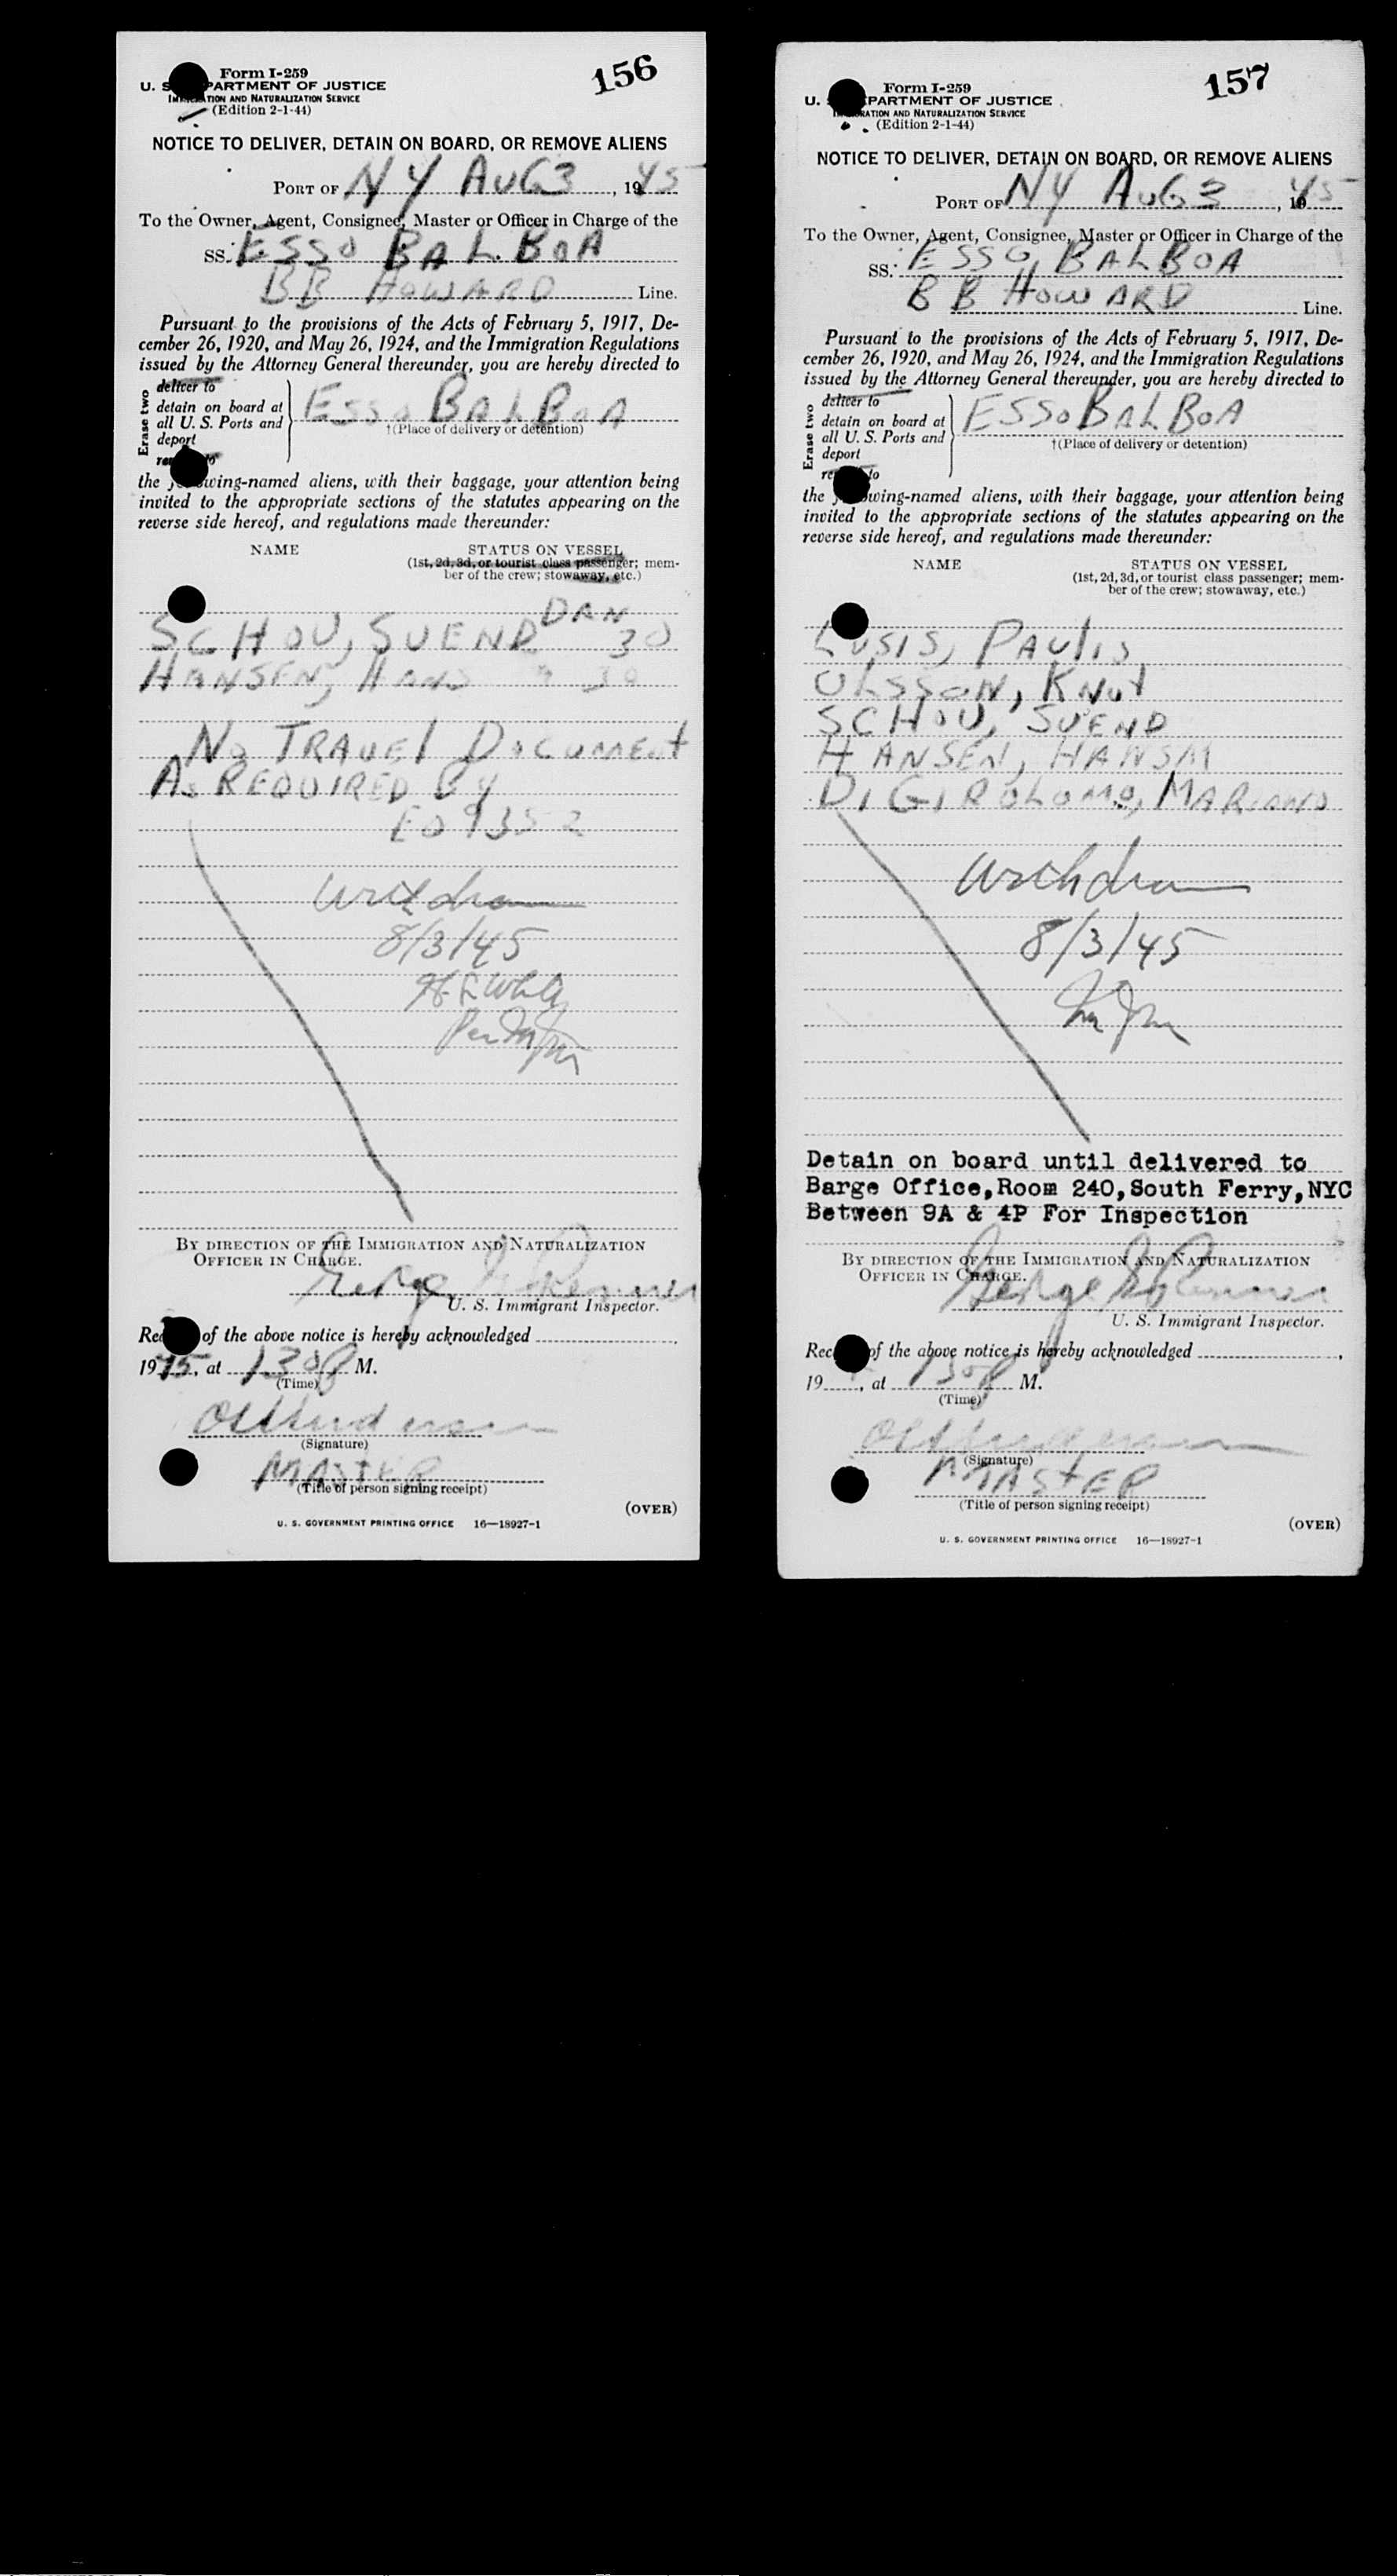 156
Form I-259
U. S. PARTMENT OF JUSTICE
TION AND NATURALIZATION SERVICE
(Edition 2-1-44)
NOTICE TO DELIVER, DETAIN ON BOARD, OR REMOVE ALIENS
PORT OF NY AUG 3, 1945
To the Owner, Agent, Consignee, Master or Officer in Charge of the
SS. ESSO BALBOA
BB HOWARD Line.
Pursuant to the provisions of the Acts of February 5, 1917, De-
cember 26, 1920, and May 26, 1924, and the Immigration Regulations
issued by the Attorney General thereunder, you are hereby directed to
Erase two
deliver to
detain on board at
all U. S. Ports and
deport
to
ESSO BALBOA
†(Place of delivery or detention)
the wing-named aliens, with their baggage, your attention being
invited to the appropriate sections of the statutes appearing on the
reverse side hereof, and regulations made thereunder:
NAME STATUS ON VESSEL
(1st, 2d, 3d, or tourist class passenger; mem-
ber of the crew; stowaway, etc.)
DAN
SCHOU, SUEND 30
HANSEN, HANS " 30
NO TRAVEL DOCUMENT
AS REQUIRED BY
EO 9352
Withdrawn
8/3/45
BY DIRECTION OF THE IMMIGRATION AND NATURALIZATION
OFFICER IN CHARGE.
George
U. S. Immigrant Inspector.
Rec of the above notice is hereby acknowledged
1945, at 130 P M.
(Time)
(Signature)
MASTER
(Title of person signing receipt)
(OVER)
U. S. GOVERNMENT PRINTING OFFICE 16—18927-1
157
Form I-259
U. PARTMENT OF JUSTICE
RATION AND NATURALIZATION SERVICE
(Edition 2-1-44)
NOTICE TO DELIVER, DETAIN ON BOARD, OR REMOVE ALIENS
PORT OF NY AUG 3, 1945
To the Owner, Agent, Consignee, Master or Officer in Charge of the
SS. ESSO BALBOA
BB HOWARD Line.
Pursuant to the provisions of the Acts of February 5, 1917, De-
cember 26, 1920, and May 26, 1924, and the Immigration Regulations
issued by the Attorney General thereunder, you are hereby directed to
Erase two
deliver to
detain on board at
all U. S. Ports and
deport
to
ESSO BALBOA
†(Place of delivery or detention)
the wing-named aliens, with their baggage, your attention being
invited to the appropriate sections of the statutes appearing on the
reverse side hereof, and regulations made thereunder:
NAME STATUS ON VESSEL
(1st, 2d, 3d, or tourist class passenger; mem-
ber of the crew; stowaway, etc.)
LUSIS, PAULIS
OLSSON, KNUT
SCHOU, SUEND
HANSEN, HANS M
DIGIROLOMO, MARIANO
Withdrawn
8/3/45
Detain on board until delivered to
Barge Office,Room 240,South Ferry,NYC
Between 9A & 4P For Inspection
BY DIRECTION OF THE IMMIGRATION AND NATURALIZATION
OFFICER IN CHARGE.
George
U. S. Immigrant Inspector.
Rec of the above notice is hereby acknowledged
19, at 130 P M.
(Time)
(Signature)
MASTER
(Title of person signing receipt)
(OVER)
U. S. GOVERNMENT PRINTING OFFICE 16—18927-1